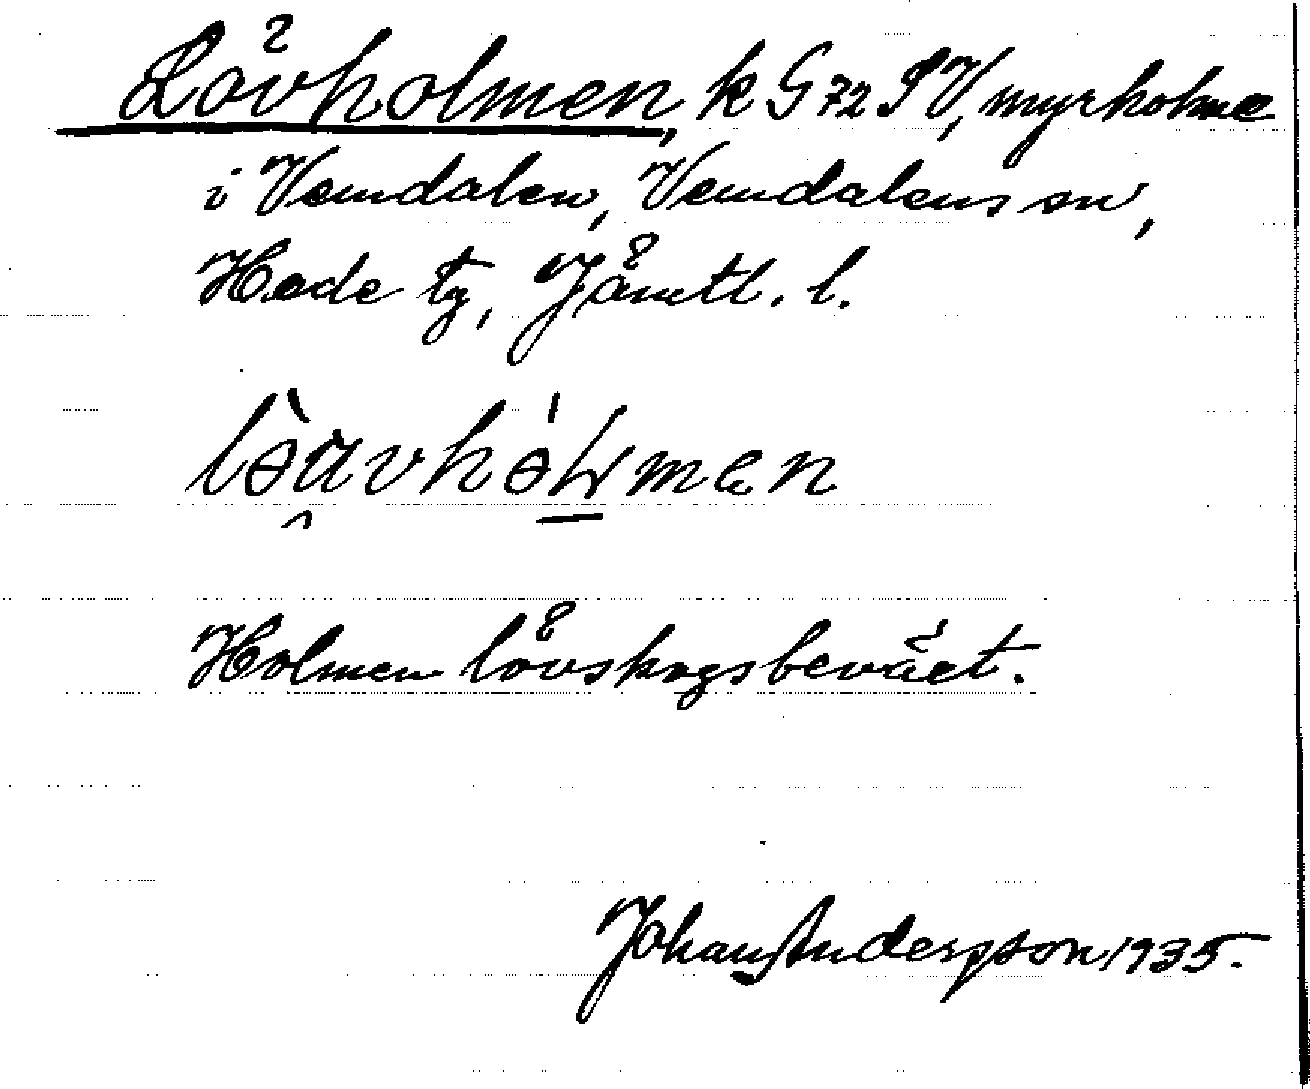 Lövholmen, k G 72 SV, myrholme
i Vemdalen, Vemdalens sn,
Hede tg, Jämtl. l.
Holmen lövskogsbeväxt.
Johan Andersson 1935.